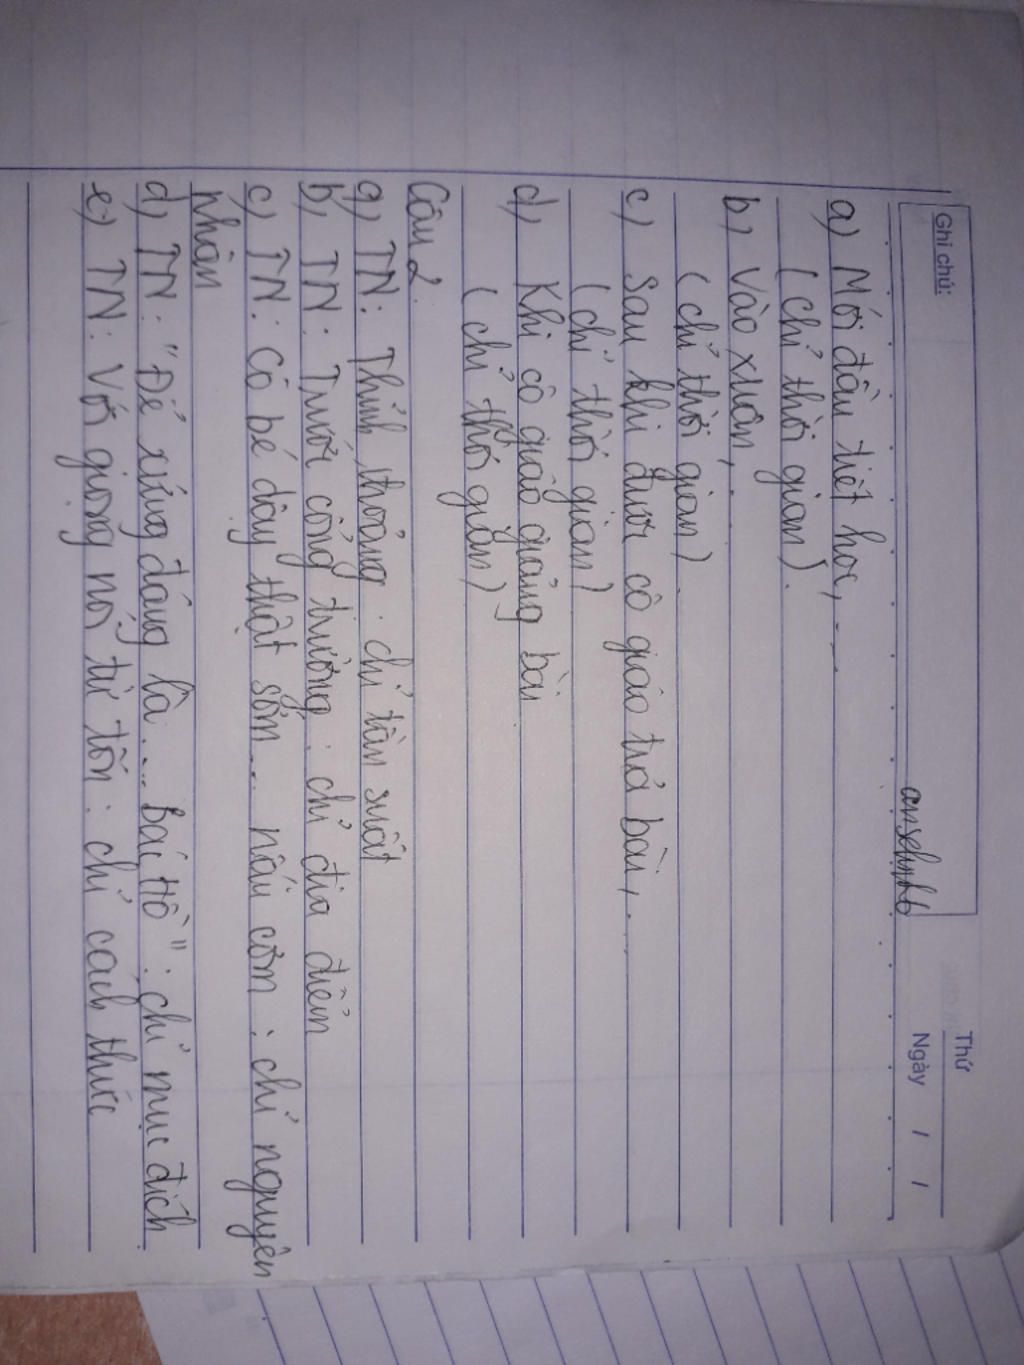 Ghi chú:
Thứ
Ngày / /
anselynk6
a) Mới đầu tiết học, ...
( chỉ thời gian).
b) Vào xuân,
( chỉ thời gian)
c) Sau khi được cô giáo trả bài, ...
( chỉ thời gian)
d) Khi cô giáo giảng bài
( chỉ thời gian)
Câu 2.
a) TN: Thỉnh thoảng: chỉ tần suất
b) TN: Trước cổng trường: chỉ địa điểm
c) TN: Cô bé dậy thật sớm ... nấu cơm: chỉ nguyên
nhân
d) TN: "Để xứng đáng là ... Bác Hồ": chỉ mục đích
e) TN: Với giọng nói từ tốn: chỉ cách thức